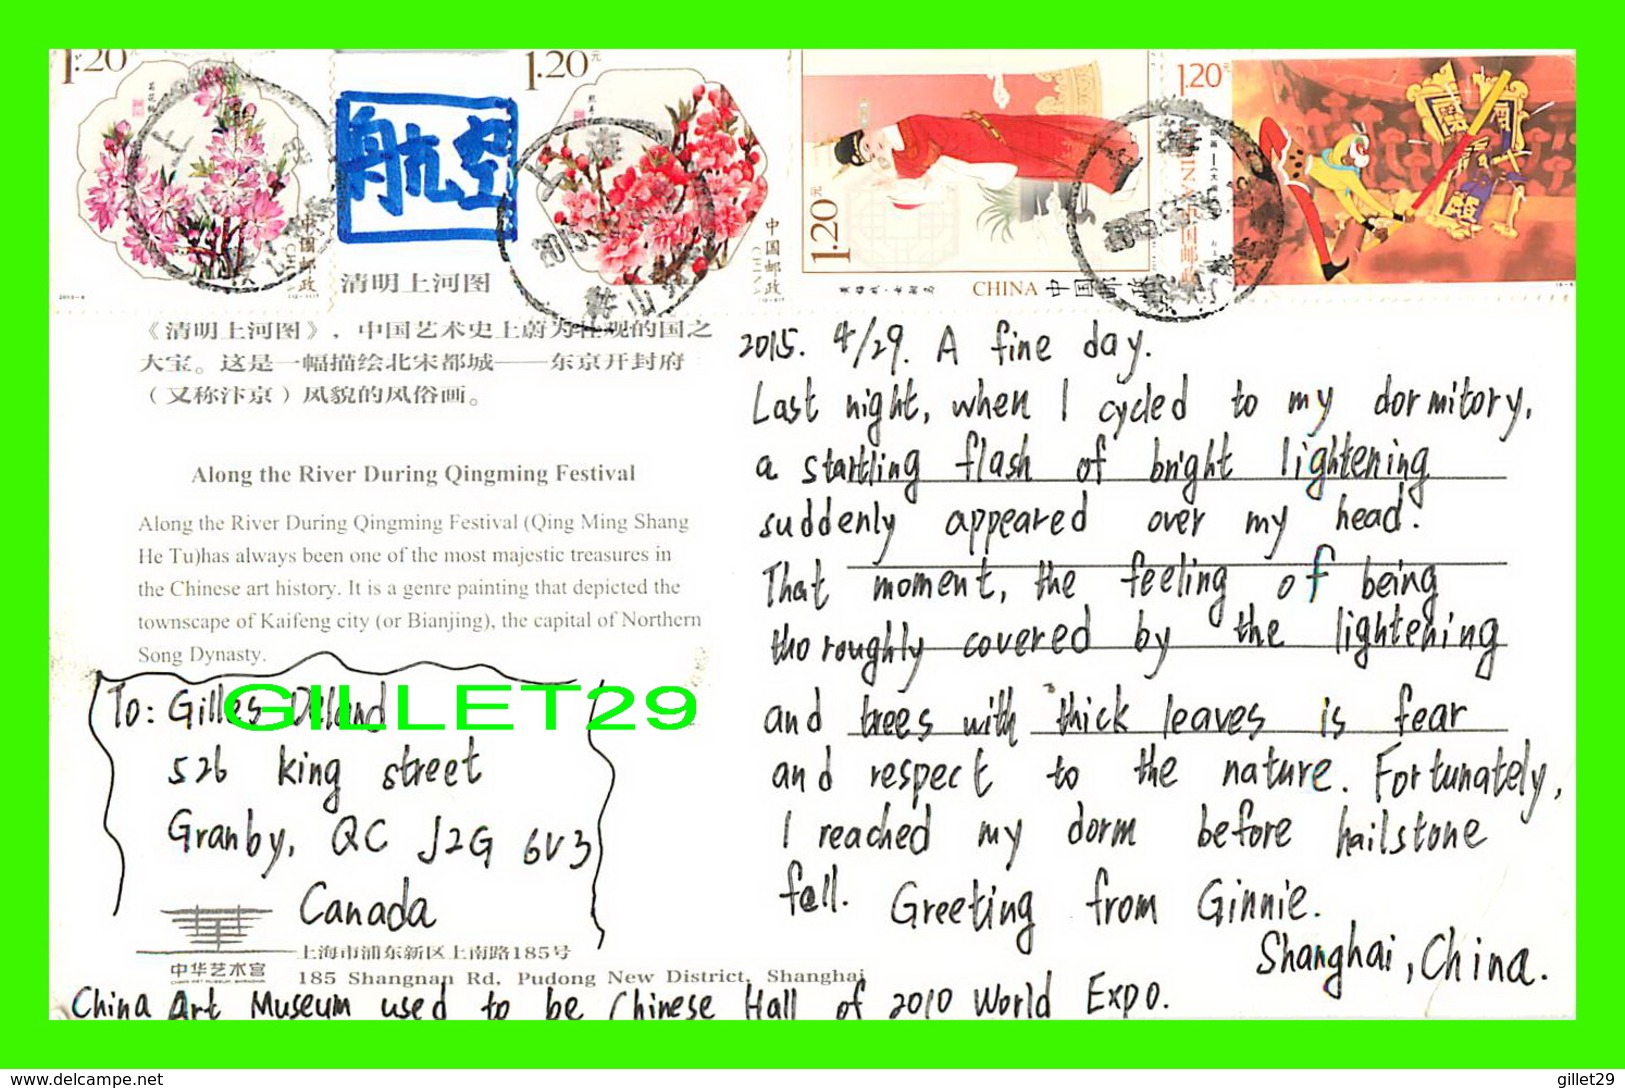 1.20元
1.20元
1.20元
1.20元
航空
中国邮政
中国邮政
CHINA 中国邮政
清明上河图
《清明上河图》，中国艺术史上蔚为壮观的国之
大宝。这是一幅描绘北宋都城——东京开封府
（又称汴京）风貌的风俗画。
Along the River During Qingming Festival
Along the River During Qingming Festival (Qing Ming Shang
He Tu)has always been one of the most majestic treasures in
the Chinese art history. It is a genre painting that depicted the
townscape of Kaifeng city (or Bianjing), the capital of Northern
Song Dynasty.
To: Gilles Deland
GILLET29
526 king street
Granby, QC J2G 6V3
Canada
2015. 4/29. A fine day.
Last night, when I cycled to my dormitory,
a startling flash of bright lightening
suddenly appeared over my head.
That moment, the feeling of being
thoroughly covered by the lightening
and trees with thick leaves is fear
and respect to the nature. Fortunately,
I reached my dorm before hailstone
fall. Greeting from Ginnie.
Shanghai, China.
中华艺术宫
上海市浦东新区上南路185号
185 Shangnan Rd, Pudong New District, Shanghai
China Art Museum used to be Chinese Hall of 2010 World Expo.
delcampe.net
gillet29